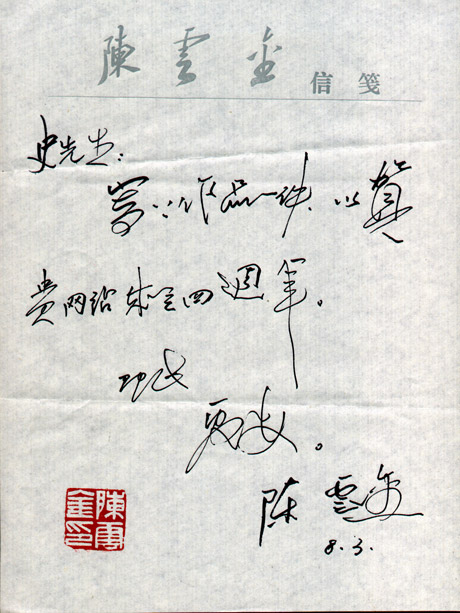 陳雲金 信箋
史先生:
寄以作品一件、以賀
貴网站成立四週年。
夏安。
陈雲金
8.3.
陳雲金印